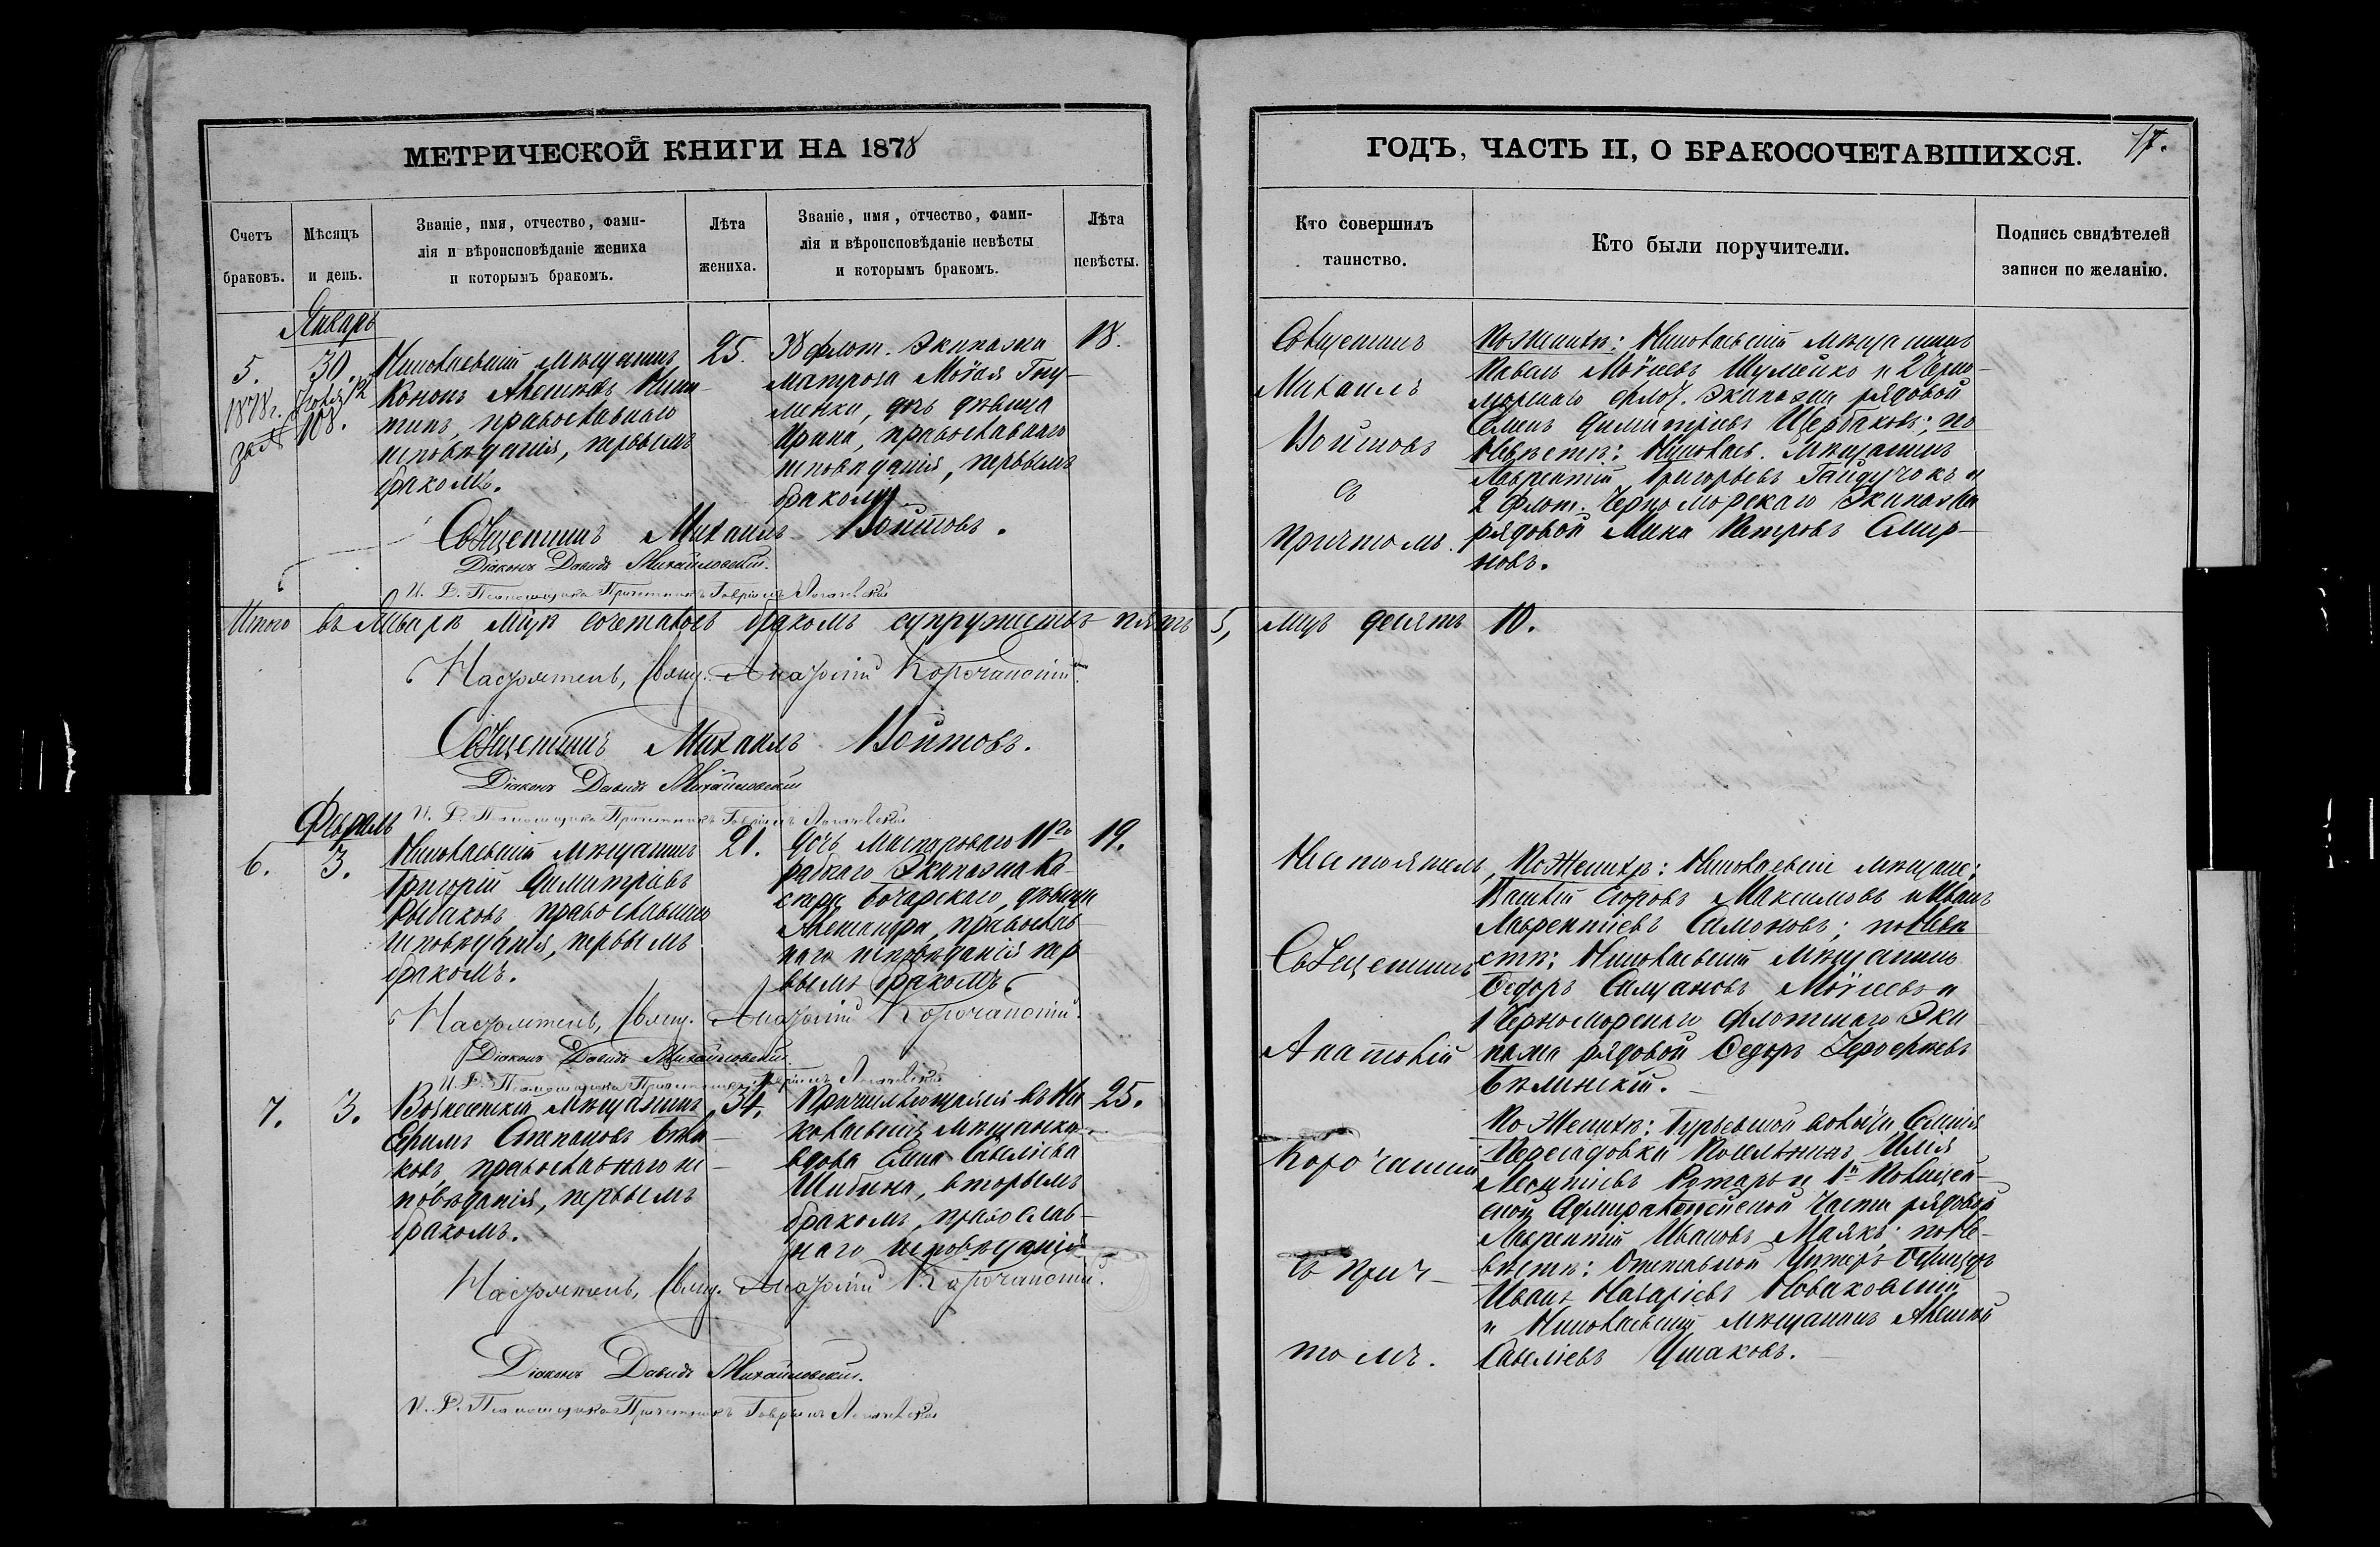 МЕТРИЧЕСКОЙ КНИГИ НА 1878
Счетъ браковъ.
Мѣсяцъ и день.
Званіе, имя, отчество, фами-
лія и вѣроисповѣданіе жениха
и которымъ бракомъ.
Лѣта
жениха.
Званіе, имя, отчество, фами-
лія и вѣроисповѣданіе невѣсты
и которымъ бракомъ.
Лѣта
невѣсты.
Январь
5.
1878г.
за №
30.
108.
Николаевскій мѣщанинъ
Кононъ Алексѣевъ Ники-
тинъ, православнаго
исповѣданія, первымъ
бракомъ.
25.
38 флот. Экипажа
матроса Моѵсея Гну-
менки, дочь дѣвица
Ирина, православнаго
исповѣданія, первымъ
бракомъ
18.
Священникъ Михаилъ Войтовъ.
Діаконъ Давидъ Михайловскій.
И. Д. Псаломщика Причетникъ Гавріилъ
Итого въ Январѣ м̃цѣ сочеталось бракомъ супружествъ пять 5,
Настоятель, Свящ. Анатолій Корочанскій
Священникъ Михаилъ Войтовъ.
Діаконъ Давидъ Михайловскій
И. Д. Псаломщика Причетникъ Гавріилъ
Февраль
6.
3.
Николаевскій мѣщанинъ
Григорій Димитріевъ
Рыбаковъ, православнаго
исповѣданія, первымъ
бракомъ.
21.
Дочь Мастероваго 11го
рабочаго Экипажа Ка-
спара Бочарскаго, дѣвица
Александра, православ-
наго исповѣданія пер-
вымъ бракомъ
19.
Настоятель, Свящ. Анатолій Корочанскій.
Діаконъ Давидъ Михайловскій
И. Д. Псаломщика Причетникъ Гавріилъ
7.
3.
Вознесенскій мѣщанинъ
Ефимъ Степановъ
ковъ, православнаго ис-
повѣданія, первымъ
бракомъ.
34.
Причисляющаяся въ Ни-
колаевскія мѣщанки
вдова Анна Савеліева
Шибина, вторымъ
бракомъ, православ-
наго исповѣданія
25.
Настоятель, Свящ. Анатолій Корочанскій.
Діаконъ Давидъ Михайловскій.
И. Д. Псаломщика Причетникъ Гавріилъ
ГОДЪ, ЧАСТЬ II, О БРАКОСОЧЕТАВШИХСЯ.
17.
Кто совершилъ
таинство.
Кто были поручители.
Подпись свидѣтелей
записи по желанію.
Священникъ
Михаилъ
Войтовъ
съ
причтомъ.
По женихѣ: Николаевскій мѣщанинъ
Павелъ Моѵсеевъ Шулейко и 2 Черно-
морскаго флот. Экипажа рядовой
Семенъ Димитріевъ Щербаковъ; по
Невѣстѣ: Николаев. мѣщанинъ
Лаврентій Григорьевъ Гайдучокъ и
2 флот. Черноморскаго Экипажа
рядовой Мина Петровъ Смир-
новъ.
лицъ десять 10.
Настоятель,
Священникъ
Анатолій
Корочанскій
съ прич-
томъ.
По Женихѣ: Николаевскіе мѣщане:
Максимовъ и Иванъ
Лаврентіевъ Самоновъ; по Невѣ
стѣ: Николаевскій мѣщанинъ
Ѳедоръ Моѵсеевъ и
1 Черноморскаго флотскаго Эки-
пажа рядовой Ѳедоръ
Бѣлинскій.
По Женихѣ:
Пересадовки поселянинъ Илія
Леонтіевъ Ротарь и
Адмиралтейской части рядовой
Лаврентій Ивановъ Маякъ; по Не-
вѣстѣ: Отставной Унтеръ Офицеръ
Иванъ Назаріевъ Новаковскій
и Николаевскій мѣщанинъ Алексѣй
Савеліевъ Ушаковъ.